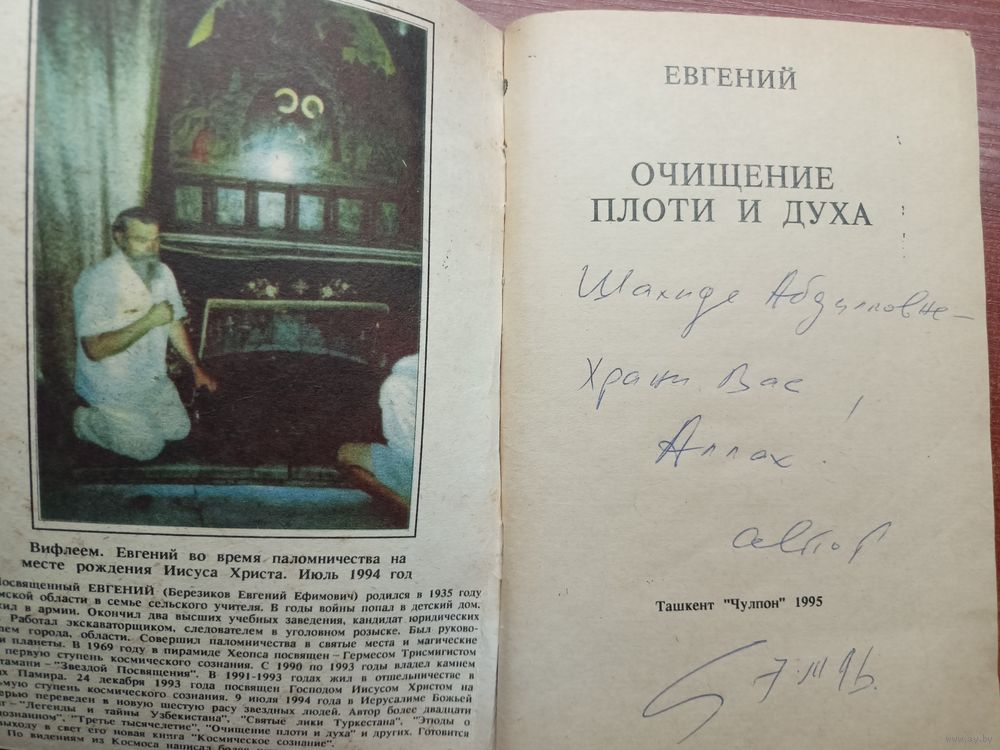 Вифлеем. Евгений во время паломничества на
месте рождения Иисуса Христа. Июль 1994 год
Посвященный ЕВГЕНИЙ (Березиков Евгений Ефимович) родился в 1935 году
мской области в семье сельского учителя. В годы войны попал в детский дом.
жил в армии. Окончил два высших учебных заведения, кандидат юридических
. Работал экскаваторщиком, следователем в уголовном розыске. Был руково-
лем города, области. Совершил паломничества в святые места и магические
и планеты. В 1969 году в пирамиде Хеопса посвящен – Гермесом Трисмигистом
первую ступень космического сознания. С 1990 по 1993 годы владел камнем
тамани – "Звездой Посвящения". В 1991-1993 годах жил в отшельничестве в
ах Памира. 24 декабря 1993 года посвящен Господом Иисусом Христом на
ьмую ступень космического сознания. 9 июля 1994 года в Иерусалиме Божьей
ерью переведен в новую шестую расу звездных людей. Автор более двадцати
г – "Легенды и тайны Узбекистана", "Святые лики Туркестана", "Этюды о
дознанном", "Третье тысячелетие", "Очищение плоти и духа" и других. Готовится
выходу в свет его новая книга "Космическое сознание".
По видениям из Космоса написал более
ЕВГЕНИЙ
ОЧИЩЕНИЕ
ПЛОТИ И ДУХА
Шахиде –
Храни Вас
Аллах
автор
Ташкент "Чулпон" 1995
7.III 96.
www.ay.by